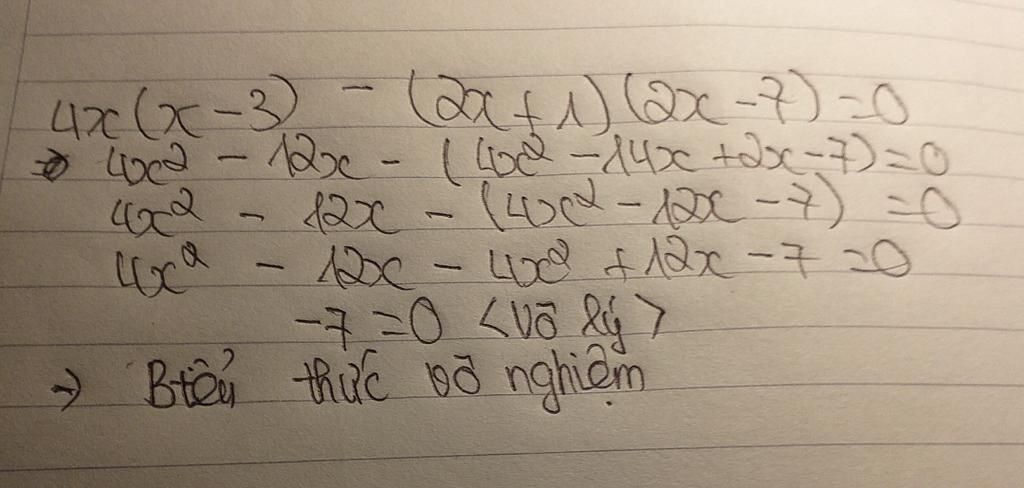 4x(x-3) - (2x+1)(2x-7)=0
→ 4x² - 12x - (4x² - 14x + 2x - 7)=0
4x² - 12x - (4x² - 12x - 7) =0
4x² - 12x - 4x² + 12x - 7 =0
-7 =0 <Vô lý>
→ Biểu thức vô nghiệm